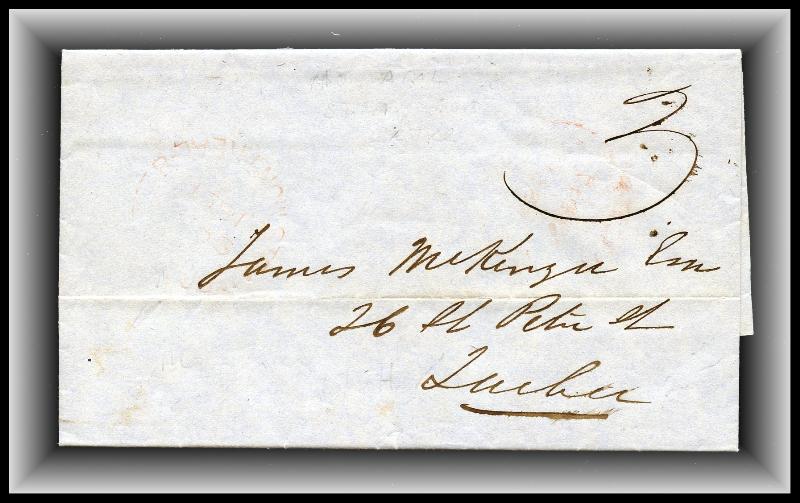 3
James McKenzie Esq
26 St Peter St
Quebec